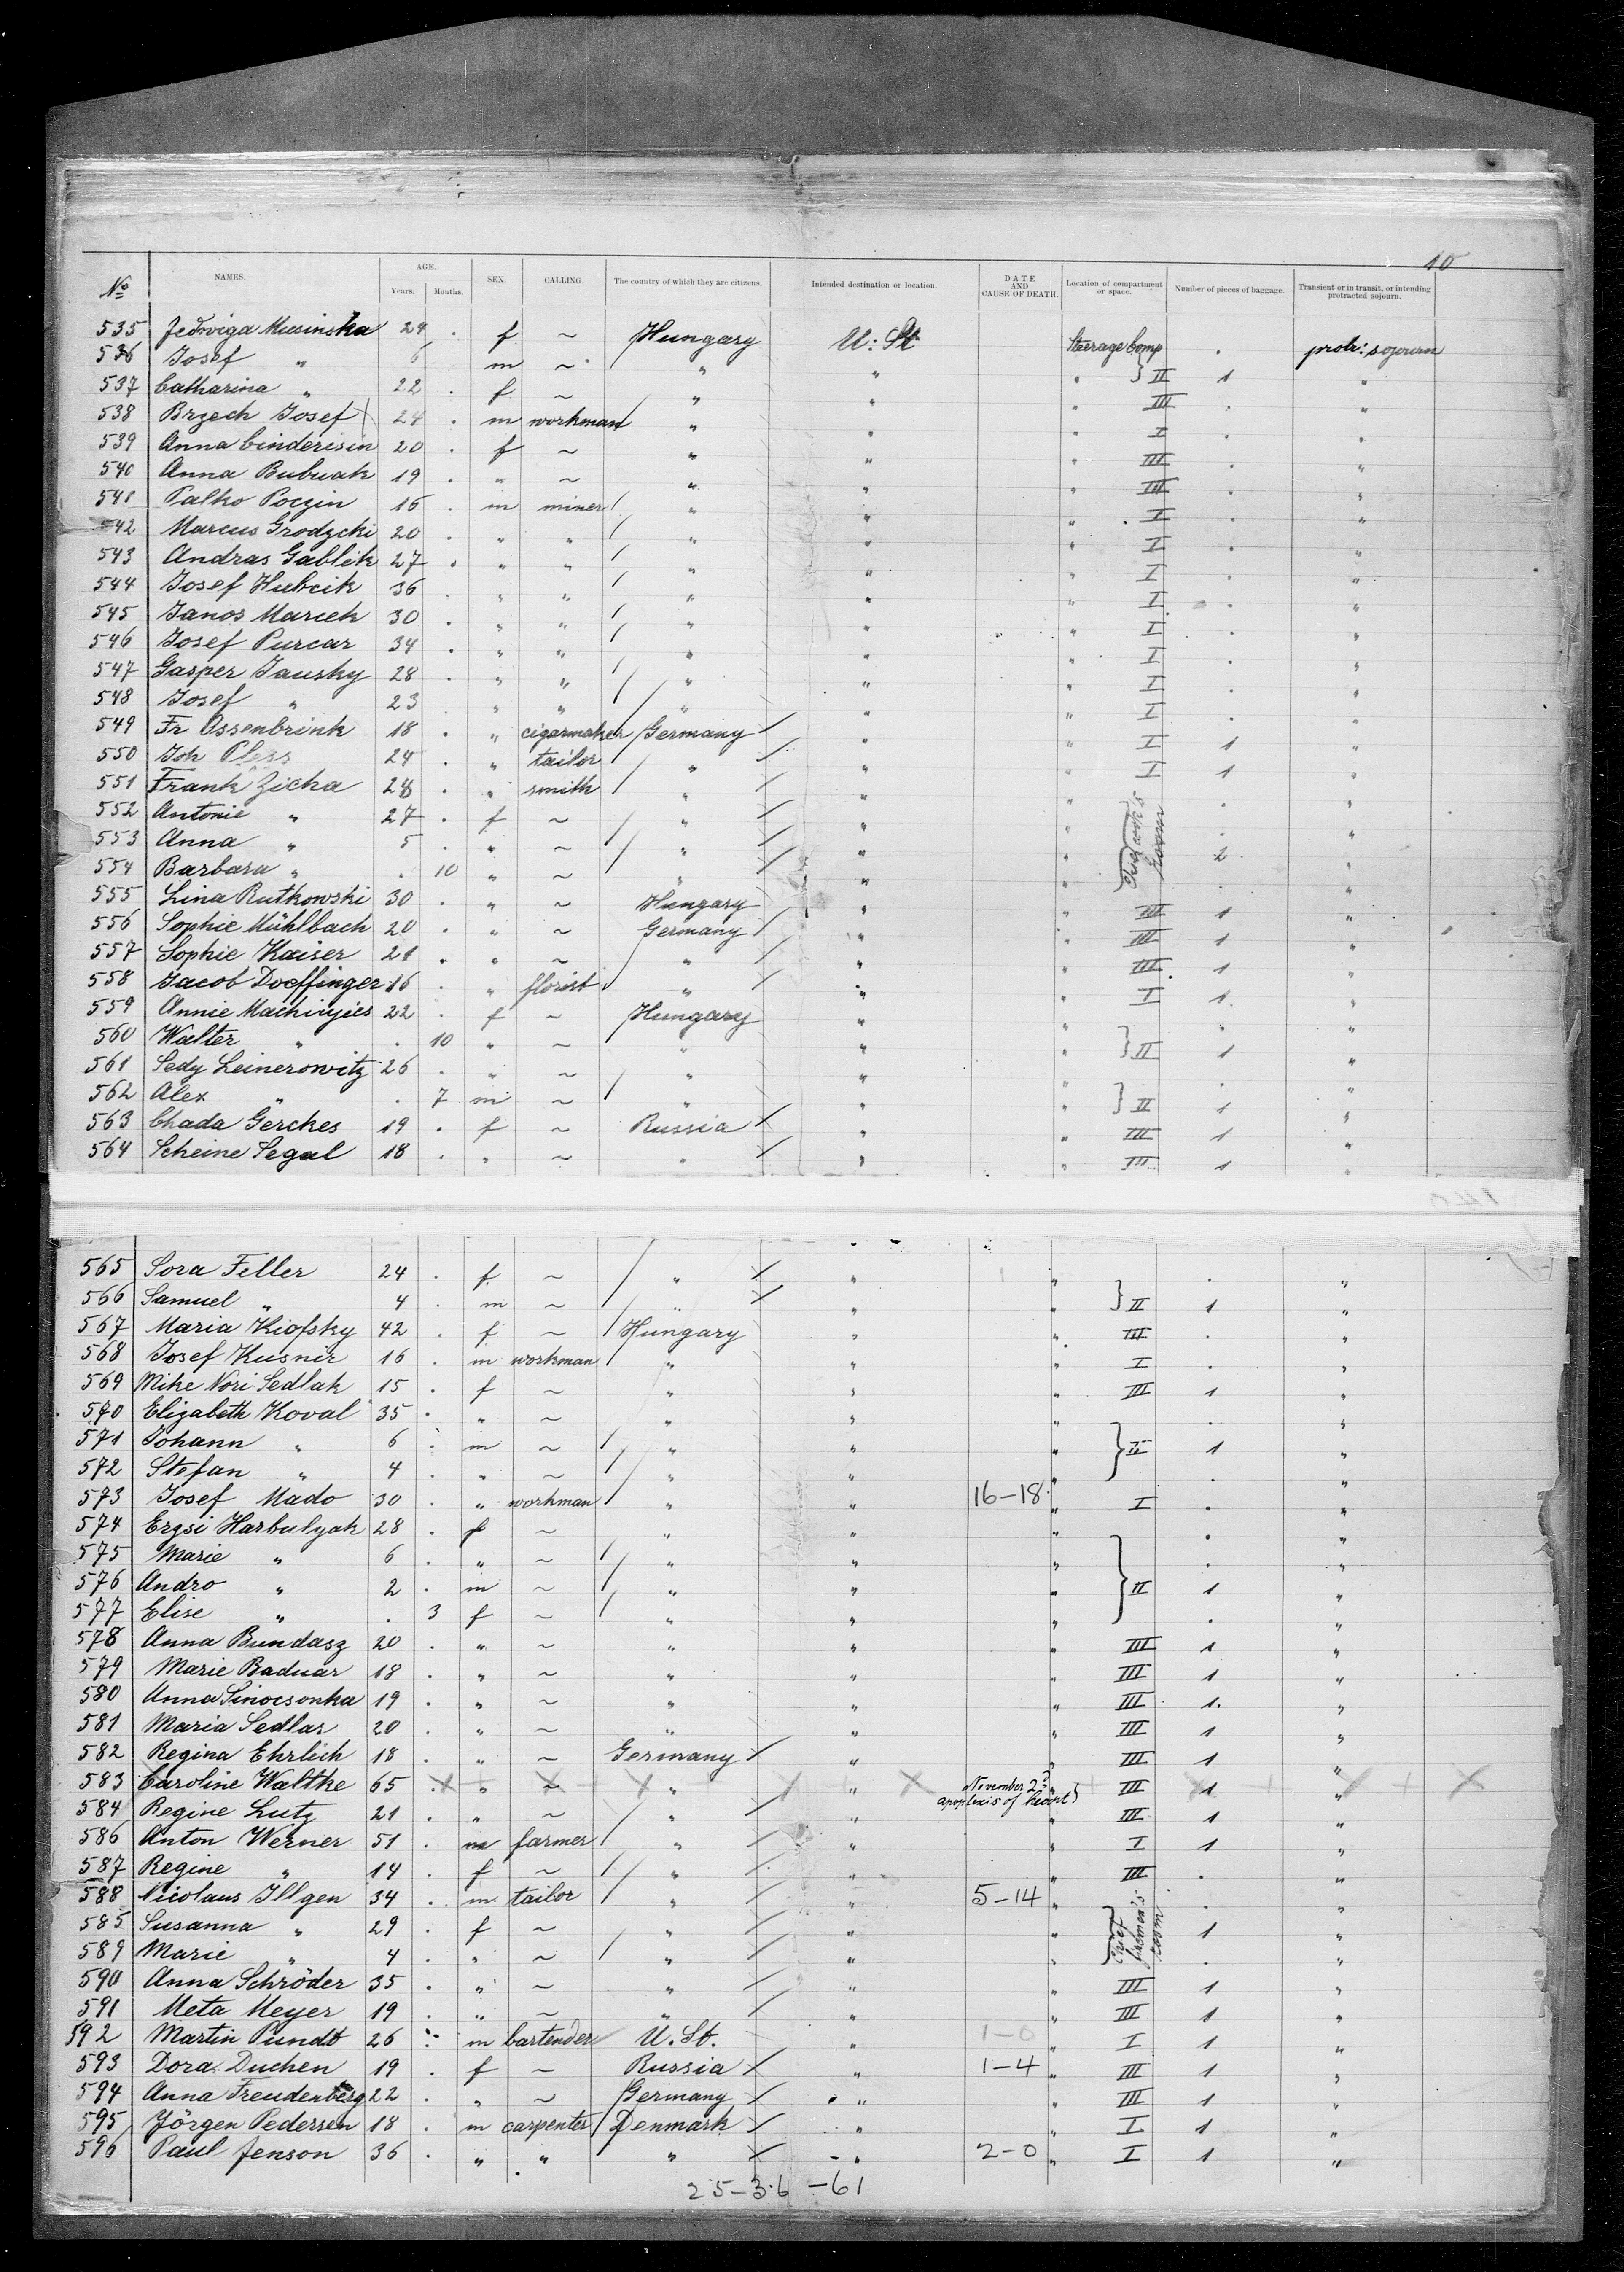 10
No NAMES. AGE. Years. Months. SEX. CALLING. The country of which they are citizens. Intended destination or location. DATE AND CAUSE OF DEATH. Location of compartment or space. Number of pieces of baggage. Transient or in transit, or intending protracted sojourn.
535 Jedwiga Musinska 24 . f ~ Hungary U: St. Steerage Comp . protr: sojourn
536 Josef " 6 m ~ " " " } II 1 "
537 Catharina " 22 . f ~ " " " III . "
538 Brzech Josef 24 . m workman " " " I . "
539 Anna Cinderesin 20 . f ~ " " " III . "
540 Anna Bubuak 19 . " ~ " " " III . "
541 Palko Poczin 16 . m miner " " " I . "
542 Marcus Grodzcki 20 . " " " " " I . "
543 Andras Gablik 27 . " " " " " I . "
544 Josef Hubcik 36 . " " " " " I . "
545 Janos Marcek 30 . " " " " " I . "
546 Josef Purcar 34 . " " " " " I . "
547 Gasper Jansky 28 . " " " " " I . "
548 Josef " 23 . " " " " " I . "
549 Fr Ossenbrink 18 . " cigarmaker Germany " " I 1 "
550 Joh Pless 24 . " tailor " " " I 1 "
551 Frank Zicha 28 . " smith " " " . "
552 Antonie " 27 . f ~ " " " . "
553 Anna " 5 . " ~ " " " 2 "
554 Barbara " . 10 " ~ " " " . "
555 Lina Rutkowski 30 . " ~ Hungary " " III 1 "
556 Sophie Mühlbach 20 . " ~ Germany " " III 1 "
557 Sophie Kaiser 21 . " ~ " " " III 1 "
558 Jacob Doeffinger 16 . " florist " " " I 1 "
559 Annie 22 . f ~ Hungary " " " "
560 Walter " . 10 " ~ " " " } II 1 "
561 Sedy Leinerowitz 26 . " ~ " " " . "
562 Alex " . 7 m ~ " " " } II 1 "
563 Chada Gerckes 19 . f ~ Russia " " III 1 "
564 Scheine Segal 18 . " ~ " " " III 1 "
565 Sora Feller 24 . f ~ " " " . "
566 Samuel " 4 . m ~ " " " } II 1 "
567 Maria Kiofsky 42 . f ~ Hungary " " III . "
568 Josef Kusnir 16 . m workman " " " I . "
569 Mike Nori Sedlak 15 . f ~ " " " III 1 "
570 Elizabeth Koval 35 . " ~ " " " . "
571 Johann " 6 . m ~ " " " } II 1 "
572 Stefan " 4 . " ~ " " " . "
573 Josef Mado 30 . " workman " " 16-18 " I . "
574 Erzsi Harbulyak 28 . f ~ " " " . "
575 Marie " 6 . " ~ " " " . "
576 Andro " 2 . m ~ " " " } II 1 "
577 Elise " . 3 f ~ " " " . "
578 Anna Bundasz 20 . " ~ " " " III 1 "
579 Marie Baduar 18 . " ~ " " " III 1 "
580 Anna Sinocsonka 19 . " ~ " " " III 1. "
581 Maria Sedlar 20 . " ~ " " " III 1 "
582 Regina Ehrlich 18 . " ~ Germany " " III 1 "
583 Caroline Waltke 65 . " ~ " " November 2d apoplexis of heart " III 1 "
584 Regine Lutz 21 . " ~ " " " III 1 "
586 Anton Werner 51 . m farmer " " " I 1 "
587 Regine " 14 . f ~ " " " III . "
588 Nicolaus Illgen 34 . m tailor " " 5-14 " . "
585 Susanna " 29 . f ~ " " " } Chief room 1 "
589 Marie " 4 . " ~ " " " . "
590 Anna Schröder 35 . " ~ " " " III 1 "
591 Meta Meyer 19 . " ~ " " " III 1 "
592 Martin Pundt 26 . m bartender U. St. " 1-0 " I 1 "
593 Dora Duchen 19 . f ~ Russia " 1-4 " III 1 "
594 Anna Freudenberg 22 " ~ Germany " " III 1 "
595 Jörgen Pedersen 18 . m carpenter Denmark " " I 1 "
596 Paul Jenson 36 . " " " " 2-0 " I 1 "
25-36-61